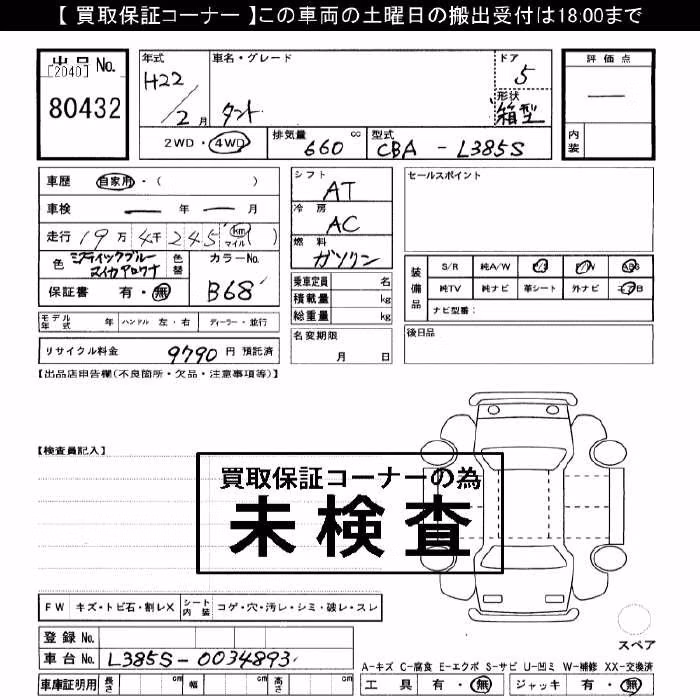 【 買取保証コーナー 】この車両の土曜日の搬出受付は18:00まで
出品 No.
[2040]
80432
年式 H22 / 2月
車名・グレード タント
ドア 5
形状 箱型
評価点 —
内装
2WD・4WD
排気量 660 cc
型式 CBA - L385S
車歴 自家用・( )
車検 — 年 — 月
走行 19万4千245 km マイル ( )
色 ミスティックブルーマイカアロワナ
色替
カラーNo. B68
保証書 有・無
シフト AT
冷房 AC
燃料 ガソリン
乗車定員 名
積載量 kg
総重量 kg
セールスポイント
装備品
S/R 純A/W P/S P/W ABS
純TV 純ナビ 革シート 外ナビ エアB
ナビ型番:
モデル年式 年 ハンドル 左・右 ディーラー・並行
リサイクル料金 9790 円 預託済
名変期限 月 日
後日品
【出品店申告欄(不良箇所・欠品・注意事項等)】
【検査員記入】
買取保証コーナーの為
未検査
FW キズ・トビ石・割レX シート内装 コゲ・穴・汚レ・シミ・破レ・スレ
登録 No.
車台 No. L385S-0034893
スペア
A-キズ C-腐食 E-エクボ S-サビ U-凹ミ W-補修 XX-交換済
車庫証明用 長さ cm 幅 cm 高さ cm
工具 有・無 ジャッキ 有・無